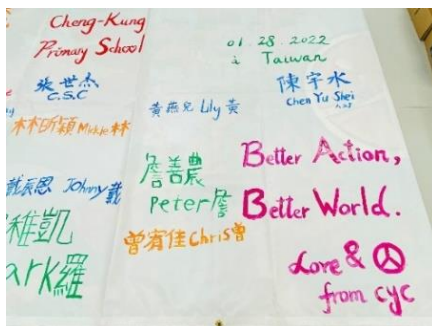 Cheng-Kung
Primary School
01 28. 2022
Taiwan
張世杰
C.S.C
陳宇水
Chen Yu Shei
黃燕兒 Lily 黃
林昕穎 Mickie 林
戴辰恩 Johnny 戴
詹善農
Peter 詹
Better Action,
Better World.
稚凱
ark 羅
曾宥佳 Chris 曾
Love & ☮
from cyc